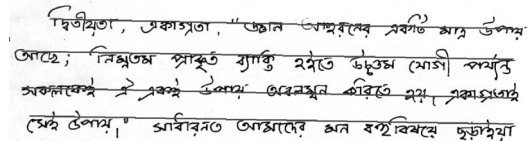 দ্বিতীয়তা, একাগ্রতা, "জ্ঞান আহরনের একটি মাত্র উপায়
আছে; নিম্নতম প্রাকৃত ব্যাক্তি হইতে উচ্চতম যোগী পর্যন্ত
সকলকেই ঐ একই উপায় অবলম্বন করিতে হয়, একাগ্রতাই
সেই উপায়।" সাধারনত আমাদের মন বহুবিষয়ে ছড়াইয়া